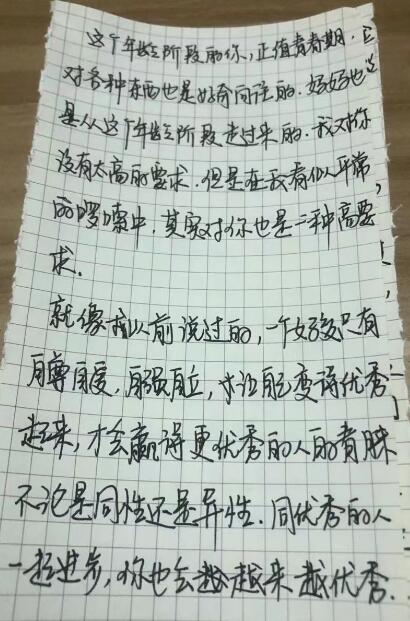 这个年龄阶段的你，正值青春期，
对各种东西也是好奇向往的，妈妈也
是从这个年龄阶段走过来的，我对你
没有太高的要求，但是在我看似平常
的啰嗦中，其实对你也是一种高要
求。
就像我以前说过的，一个女孩只有
自尊自爱，自强自立，让自己变得优秀
起来，才会赢得更优秀的人的青睐
不论是同性还是异性，同优秀的人
一起进步，你也会越越来越优秀．